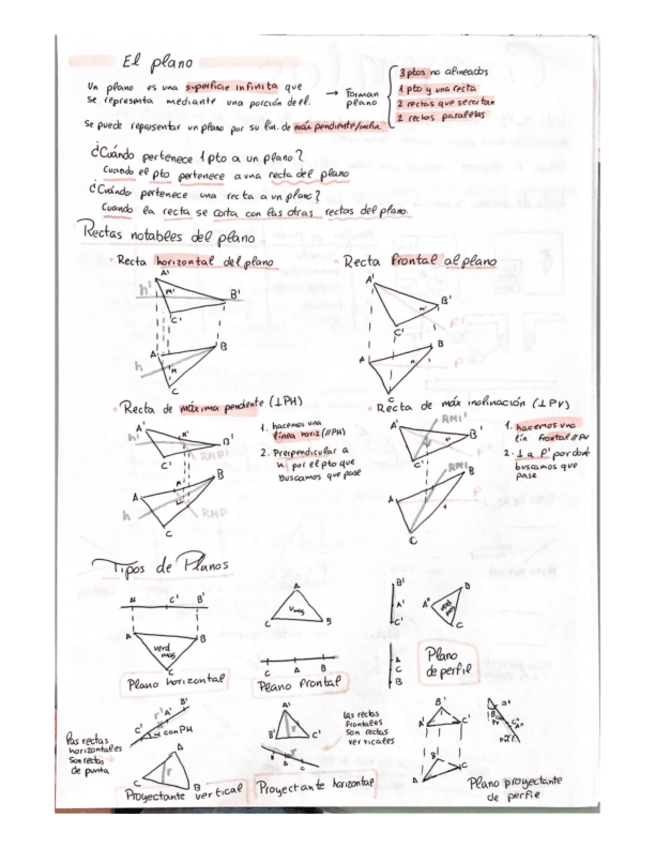 El plano
Un plano es una superficie infinita que
se representa mediante una porción de él.
→ Forman plano
3 ptos no alineados
1 pto y una recta
2 rectas que se cortan
2 rectas paralelas
Se puede representar un plano por su lín. de máx pendiente/inclin.
¿Cuándo pertenece 1 pto a un plano?
Cuando el pto pertenece a una recta del plano
¿Cuándo pertenece una recta a un plano?
Cuando la recta se corta con las otras rectas del plano.
Rectas notables del plano
• Recta horizontal del plano
• Recta frontal al plano
A' h' M' B' C'
A B h M C
A' B' C' F'
A B F C
• Recta de máxima pendente (⊥PH)
1. hacemos una
línea horiz (//PH)
2. Perpendicular a
h por el pto que
buscamos que pase
• Recta de máx inclinación (⊥PV)
1. hacemos una
lín frontal //PV
2. ⊥ a F' por dónde
buscamos que
pase
A' h' B' C' RMP'
A B h C RMP
A' RMI' B' C' F'
A RMI B C F
Tipos de Planos
A' C' B'
A B C
verd
mag
Plano horizontal
A C B
Vmag
C A B
Plano frontal
B' A' C'
A C B
A" B" C"
verd
mag
Plano
de perfil
las rectas
horizontales
son rectas
de punta
C' r' A' B'
α con PH
A C B r
Proyectante vertical
A' B' C' r'
B A C
Las rectas
frontales
son rectas
verticales
Proyectante horizontal
A' B' C'
A B C
Plano proyectante
de perfil